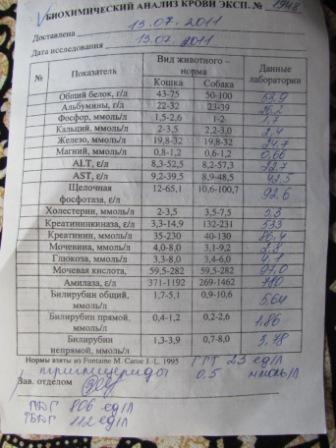 БИОХИМИЧЕСКИЙ АНАЛИЗ КРОВИ ЭКСП. № 1948
Доставлена 13.07.2011
Дата исследования 13.07.2011
№ Показатель Вид животного – норма Данные лаборатории
Кошка Собака
Общий белок, г/л 43-75 50-100
Альбумины, г/л 22-32 23-39
Фосфор, ммоль/л 1,5-2,6 1-2 1,7
Кальций, ммоль/л 2-3,5 2,2-3,0 2,4
Железо, ммоль/л 19,8-32 19,8-32
Магний, ммоль/л 0,8-1,2 0,6-1,2 0,66
ALT, е/л 8,3-52,5 8,2-57,3
AST, е/л 9,2-39,5 8,9-48,5 42,5
Щелочная фосфотаза, е/л 12-65,1 10,6-100,7 92,6
Холестерин, ммоль/л 2-3,5 3,5-7,5
Креатининкиназа, е/л 3,3-14,9 132-231 533
Креатинин, ммоль/л 35-230 40-130 86,4
Мочевина, ммоль/л 4,0-8,0 3,1-9,2
Глюкоза, ммоль/л 3,3-8,0 3,4-6,0 4,1
Мочевая кислота, 59,5-282 59,5-282 97,0
Амилаза, е/л 371-1192 269-1462
Билирубин общий, ммоль/л 1,7-5,1 0,9-10,6 5,64
Билирубин прямой, ммоль/л 0,4-1,2 0,2-2,6 1,86
Билирубин непрямой, ммоль/л 1,3-3,9 0,7-8,0 3,78
Нормы взяты из Fontaine M. Canue J.-L. 1995 ГГТ 23 ед/л
триглицериды 0,5 ммоль/л
Зав. отделом
806 ед/л
112 ед/л